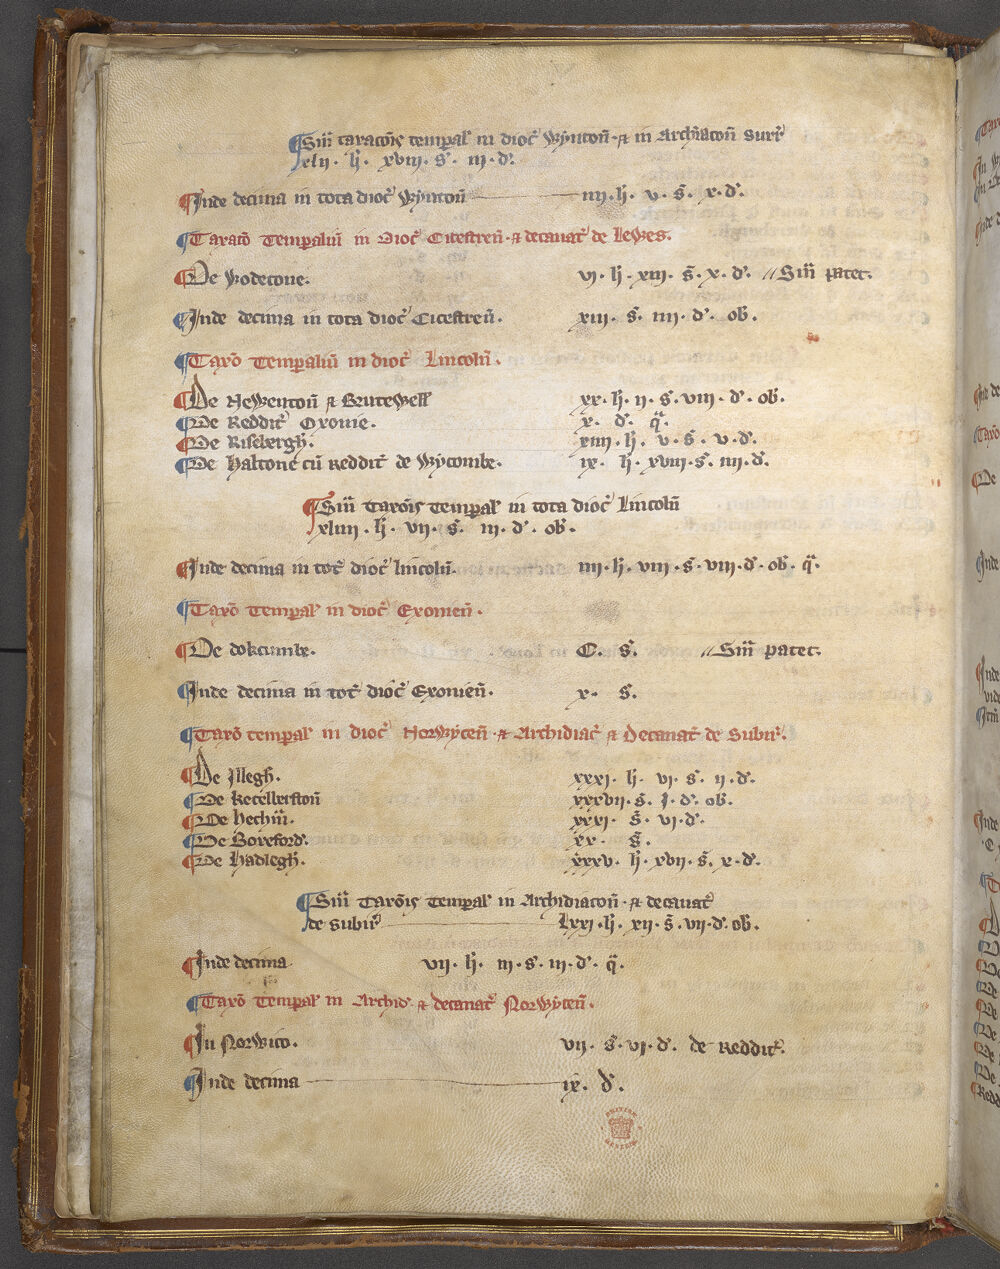 ¶Sum̄ taxacōis tempal' in dioc' Wynton̄ · & in Archiacon̄ Surr'
xlij · li · xviij · s' · iij · d'.
¶Inde decima in tota dioc' Wynton̄ iiij · li · v · s' · x · d'.
¶Taxatō Tempaliū in Dioc' Cicestren̄ · & decanat' de Lewes.
¶De Wodetone. vj · li · xiij · s' · x · d'. // Sum̄ patet.
¶Inde decima in tota dioc' Cicestren̄. xiij · s' · iiij · d' · ob'.
¶Taxō Tempaliū in dioc' Lincoln̄.
¶De Newenton̄ & Brutewell xx · li · ij · s · viij · d' · ob'.
¶De Reddit' Oxonie. x · d' · q̄.
¶De Risebergh. xiiij · li · v · s' · v · d'.
¶De Haltone cū Reddit' de Wycombe. ix · li · xviij · s' · iiij · d'.
¶Sum̄ Taxōis Tempal' in tota dioc' Lincoln̄
xliiij · li · vij · s' · iij · d' · ob'.
¶Inde decima in tot' dioc' lincoln̄. iiij · li · viij · s' · viij · d' · ob' · q̄.
¶Taxō Tempal' in dioc' Exonien̄.
¶De dokcumbe. C · s'. // Sum̄ patet.
¶Inde decima in tot' dioc' Exonien̄. x · s'.
¶Taxō tempal' in dioc' Norwycen̄ · & Archidiac' & Decanat' de Subir'.
¶De Illegh. xxxj · li · vj · s' · ij · d'.
¶De ketellerston̄ xxxvij · s' · j · d' · ob'.
¶De hechm̄. xxxj · s' · vj · d'.
¶De Boxeford'. xx · s'.
¶De Hadlegh. xxxv · li · xvij · s' · x · d'.
¶Sum̄ Taxōis Tempal' in Archidiacon̄ · & decanat'
de subir' Lxxj · li · xij · s' · vij · d' · ob'.
¶Inde decima vij · li · iij · s · iij · d' · q̄.
¶Taxō Tempal' in Archid' & decanat' Norwycen̄.
¶In Norwico. vij · s' · vj · d'. de Reddit'.
¶Inde decima ix · d'.
BRITISH
MUSEUM